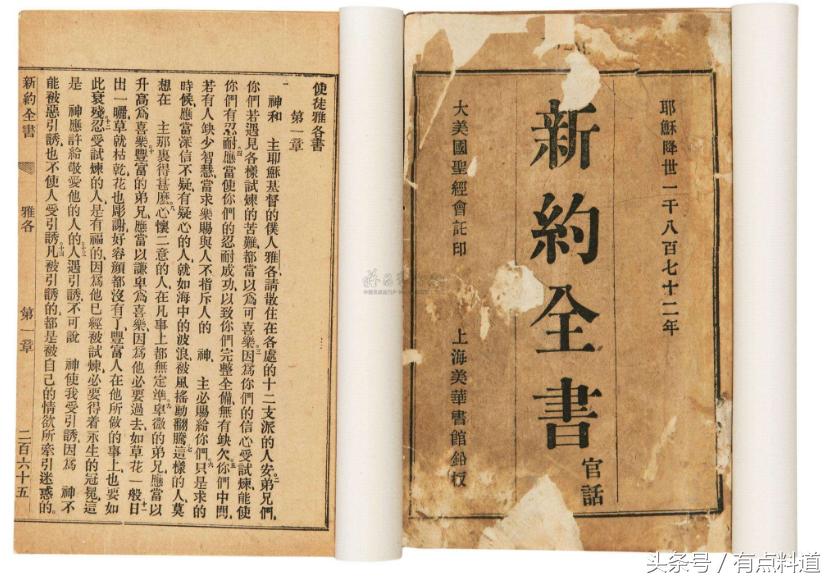 耶穌降世一千八百七十二年
新約全書
官話
大美國聖經會託印 上海美華書館鉛板
使徒雅各書
第一章
神和 主耶穌基督的僕人雅各請散住在各處的十二支派的人安弟兄們
你們若遇見各樣試煉的苦難都當以爲可喜樂因爲你們的信心受試煉能使
你們有忍耐應當使你們的忍耐成功以致你們完整全備無有缺欠你們中間
若有人缺少智慧當求樂賜與人不指斥人的 神 主必賜給你們只是求的
時候應當深信不疑有疑心的人就如海中的波浪被風搖動翻騰這樣的人莫
想在 主那裏得甚麼心懷二意的人在凡事上都無定準卑微的弟兄應當以
升高爲喜樂豐富的弟兄應當以謙卑爲喜樂因爲他必要過去如草花一般日
出一曬草就枯乾花也彫謝好容顏都沒有了豐富人在他所做的事上也要如
此衰殘忍受試煉的人是有福的因爲他已經被試煉必要得着永生的冠冕這
是 神應許給敬愛他的人的人遇引誘不可說 神使我受引誘因爲 神不
能被惡引誘也不使人受引誘凡被引誘的都是被自己的情欲所牽引迷惑的
新約全書 雅各 第一章 二百六十五
头条号 / 有点料道